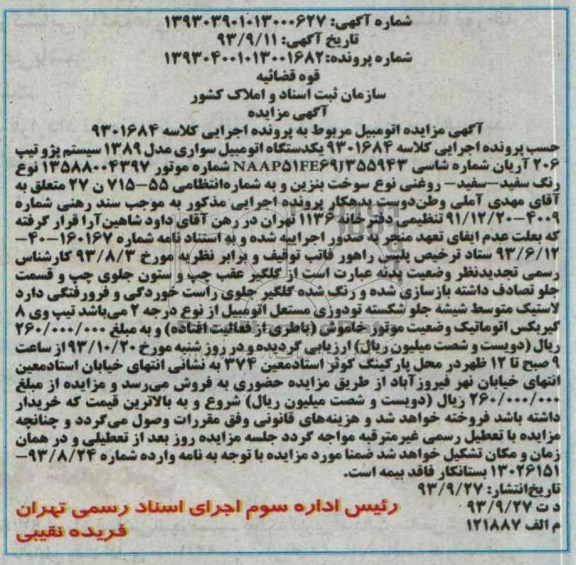 شماره آگهی: ۱۳۹۳۰۳۹۰۱۰۱۳۰۰۰۶۲۷
تاریخ آگهی: ۹۳/۹/۱۱
شماره پرونده: ۱۳۹۳۰۴۰۰۱۰۱۳۰۰۱۶۸۲
قوه قضائیه
سازمان ثبت اسناد و املاک کشور
آگهی مزایده
آگهی مزایده اتومبیل مربوط به پرونده اجرایی کلاسه ۹۳۰۱۶۸۴
حسب پرونده اجرایی کلاسه ۹۳۰۱۶۸۴ یکدستگاه اتومبیل سواری مدل ۱۳۸۹ سیستم پژو تیپ
۲۰۶ آریان شماره شاسی NAAP۵۱FE۶۹J۳۵۵۹۴۳ شماره موتور ۱۳۵۸۸۰۰۴۳۹۷ نوع
رنگ سفید-سفید- روغنی نوع سوخت بنزین و به شماره انتظامی ۵۵-۷۱۵ ن ۲۷ متعلق به
آقای مهدی آملی وطن‌دوست بدهکار پرونده اجرایی مذکور به موجب سند رهنی شماره
۴۰۰۹-۹۱/۱۲/۲۰ تنظیمی دفترخانه ۱۱۳۶ تهران در رهن آقای داود شاهین‌آرا قرار گرفته
که بعلت عدم ایفای تعهد منجر به صدور اجراییه شده و به استناد نامه شماره ۱۶۰۱۶۷-۴۰-
۹۳/۶/۱۲ ستاد ترخیص پلیس راهور فاتب توقیف و برابر نظریه مورخ ۹۳/۸/۳ کارشناس
رسمی تجدیدنظر وضعیت بدنه عبارت است از گلگیر عقب چپ و ستون جلوی چپ و قسمت
جلو تصادف داشته بازسازی شده و رنگ شده گلگیر جلوی راست خوردگی و فرورفتگی دارد
لاستیک متوسط شیشه جلو شکسته تودوزی مستعل اتومبیل از نوع درجه ۲ می‌باشد تیپ وی ۸
گیربکس اتوماتیک وضعیت موتور خاموش (باطری از فعالیت افتاده) و به مبلغ ۲۶۰/۰۰۰/۰۰۰
ریال (دویست و شصت میلیون ریال) ارزیابی گردیده و در روز شنبه مورخ ۹۳/۱۰/۲۰ از ساعت
۹ صبح تا ۱۲ ظهر در محل پارکینگ کوثر استادمعین ۳۷۴ به نشانی انتهای خیابان استادمعین
انتهای خیابان نهر فیروزآباد از طریق مزایده حضوری به فروش می‌رسد و مزایده از مبلغ
۲۶۰/۰۰۰/۰۰۰ ریال (دویست و شصت میلیون ریال) شروع و به بالاترین قیمت که خریدار
داشته باشد فروخته خواهد شد و هزینه‌های قانونی وفق مقررات وصول می‌گردد و چنانچه
مزایده با تعطیل رسمی غیرمترقبه مواجه گردد جلسه مزایده روز بعد از تعطیلی و در همان
زمان و مکان تشکیل خواهد شد ضمنا مورد مزایده با توجه به نامه وارده شماره ۹۳/۸/۲۴-
۱۳۰۲۶۱۵۱ بستانکار فاقد بیمه است.
تاریخ انتشار: ۹۳/۹/۲۷
د ت ۹۳/۹/۲۷
م الف ۱۲۱۸۸۷
رئیس اداره سوم اجرای اسناد رسمی تهران
فریده نقیبی